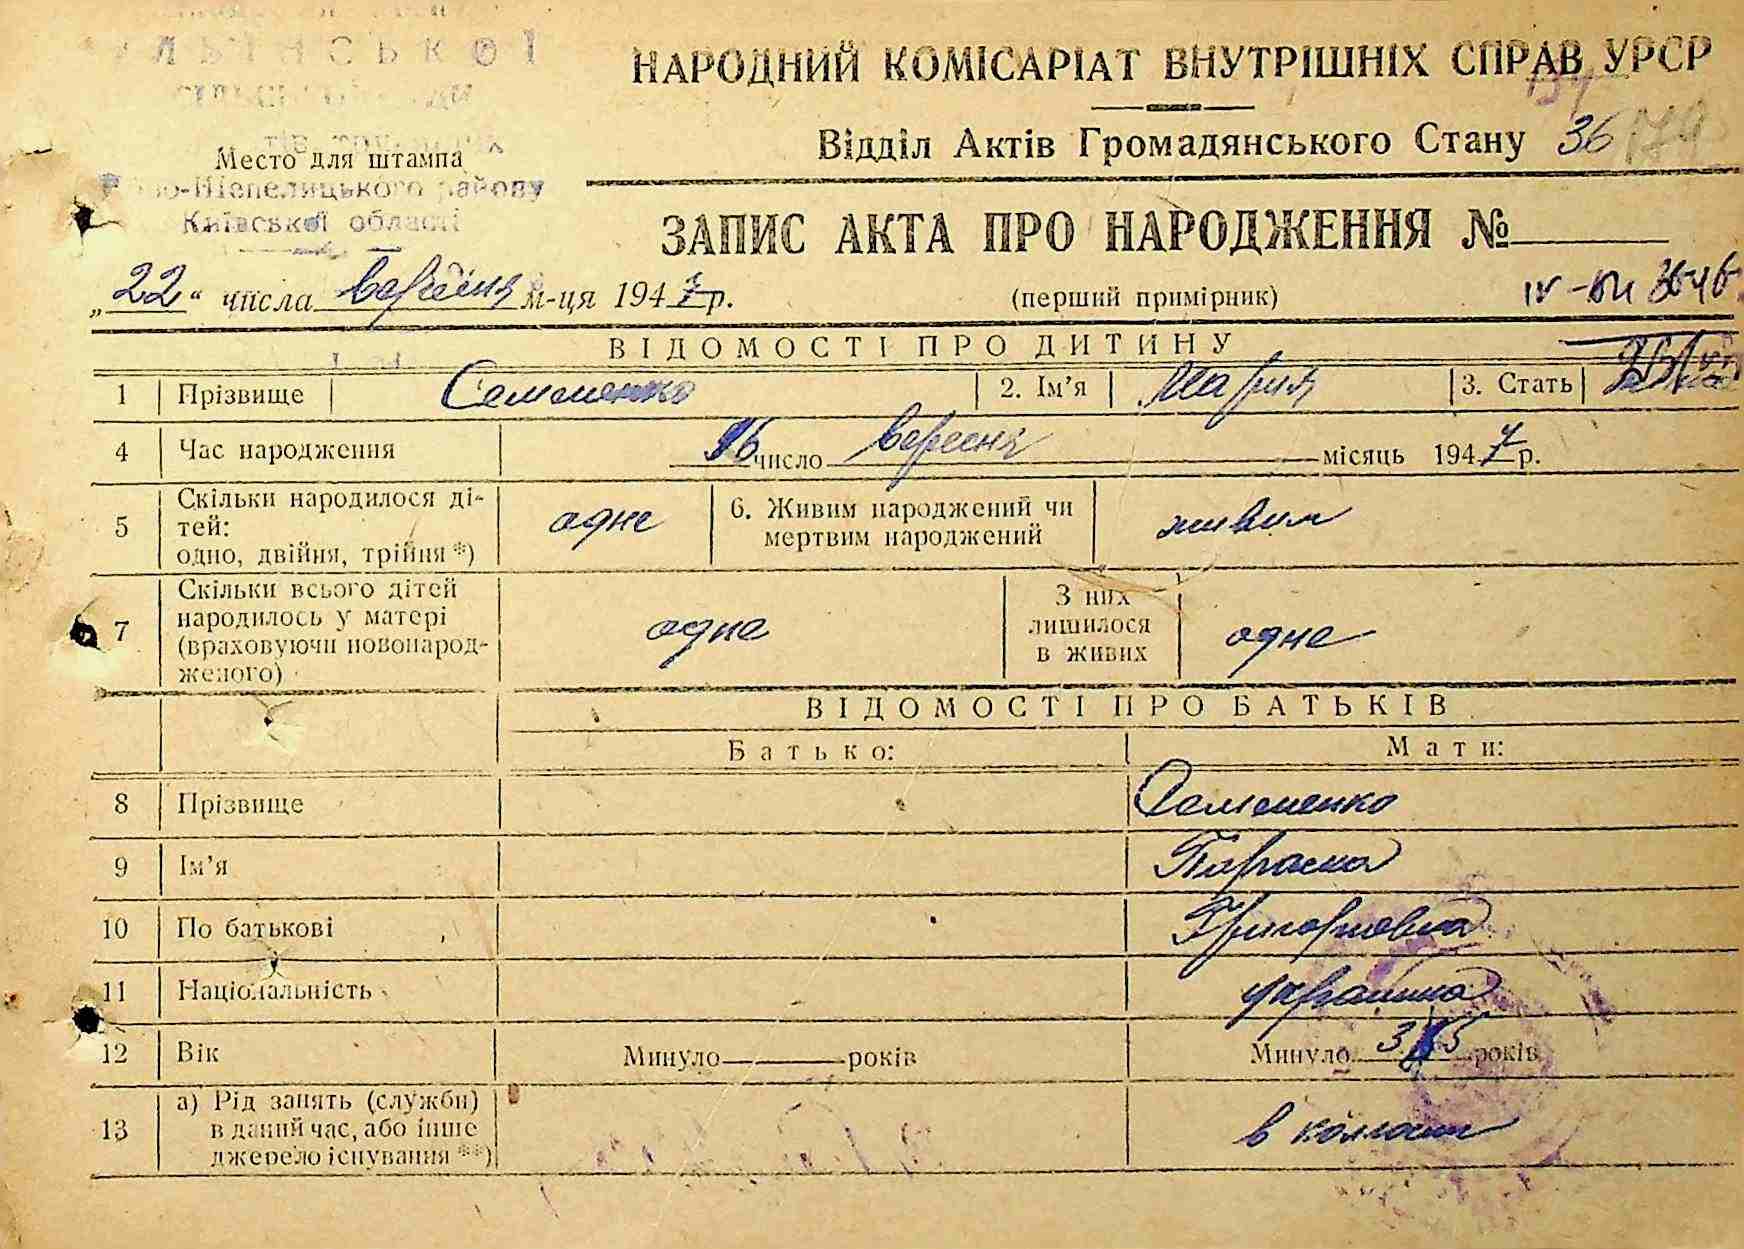 НАРОДНИЙ КОМІСАРІАТ ВНУТРІШНІХ СПРАВ УРСР
Відділ Актів Громадянського Стану 36
Место для штампа
Шепелицького району
Київської області
ЗАПИС АКТА ПРО НАРОДЖЕННЯ №
„22“ числа вересня м-ця 1947 р. (перший примірник)
ВІДОМОСТІ ПРО ДИТИНУ
1 Прізвище Семененко 2. Ім’я Мария 3. Стать
4 Час народження 16 число вересня місяць 1947 р.
5 Скільки народилося ді-
тей:
одно, двійня, трійня *) одне 6. Живим народжений чи
мертвим народжений живим
7 Скільки всього дітей
народилось у матері
(враховуючи новонарод-
женого) одне З них
лишилося
в живих одне
ВІДОМОСТІ ПРО БАТЬКІВ
Батько: Мати:
8 Прізвище Семененко
9 Ім’я Параска
10 По батькові Григорювна
11 Національність українка
12 Вік Минуло років Минуло 35 років
13 а) Рід занять (служби)
в даний час, або інше
джерело існування **) в колгоспі